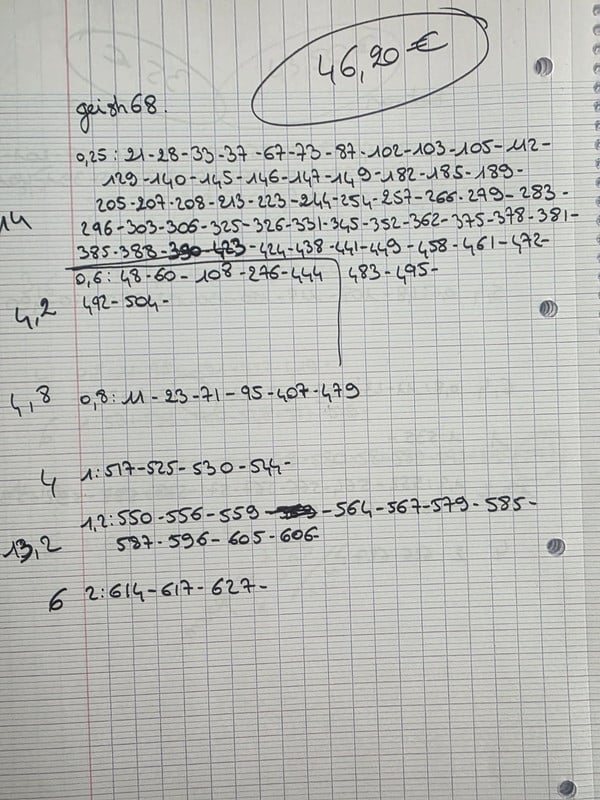 46,20 €
geish68.
0,25 : 21-28-33-37-67-73-87-102-103-105-112-
129-140-145-146-147-149-182-185-189-
205-207-208-213-223-244-254-257-266-279-283-
14 296-303-306-325-326-331-345-352-362-375-378-381-
385-388-390-423-424-438-441-449-458-461-472-
483-495-
0,6 : 48-60-108-276-444
4,2 492-504-
4,8 0,8 : 11-23-71-95-407-479
4 1 : 517-525-530-544-
1,2 : 550-556-559-564-567-579-585-
13,2 587-596-605-606-
6 2 : 614-617-627-